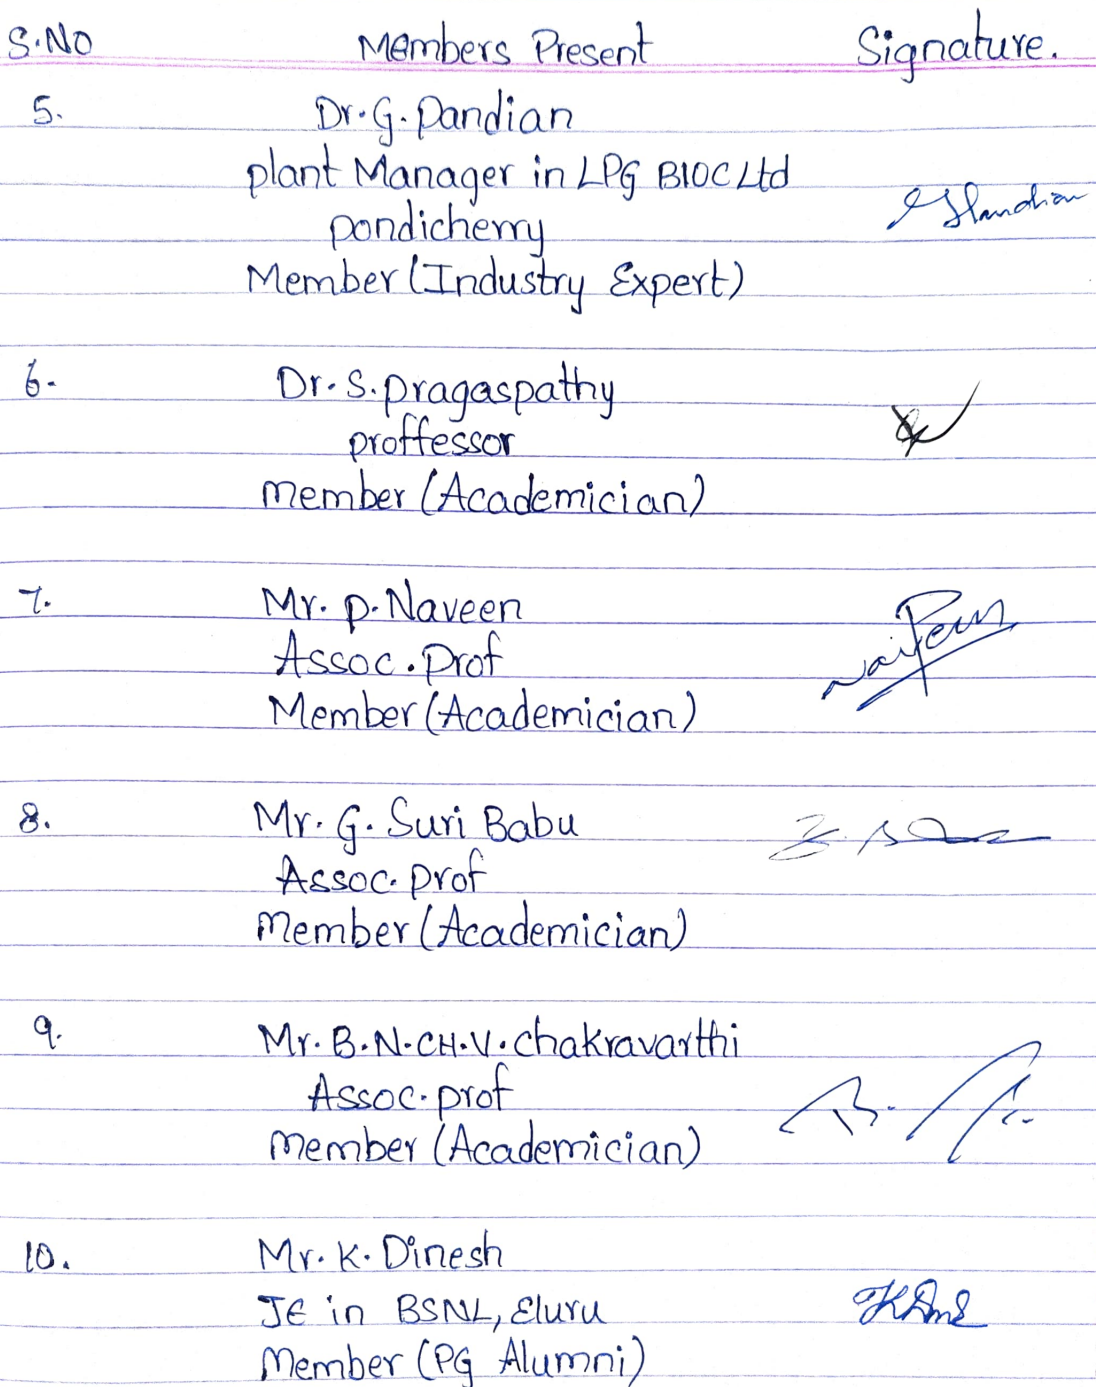 S.No Members Present Signature.
5. Dr. G. Pandian
plant Manager in LPG BIOC Ltd
pondicherry
Member (Industry Expert)
6. Dr. S. pragaspathy
proffessor
member (Academician)
7. Mr. P. Naveen
Assoc. Prof
Member (Academician)
8. Mr. G. Suri Babu
Assoc. prof
member (Academician)
9. Mr. B.N.CH.V. chakravarthi
Assoc. prof
member (Academician)
10. Mr. K. Dinesh
JE in BSNL, Eluru
Member (PG Alumni)